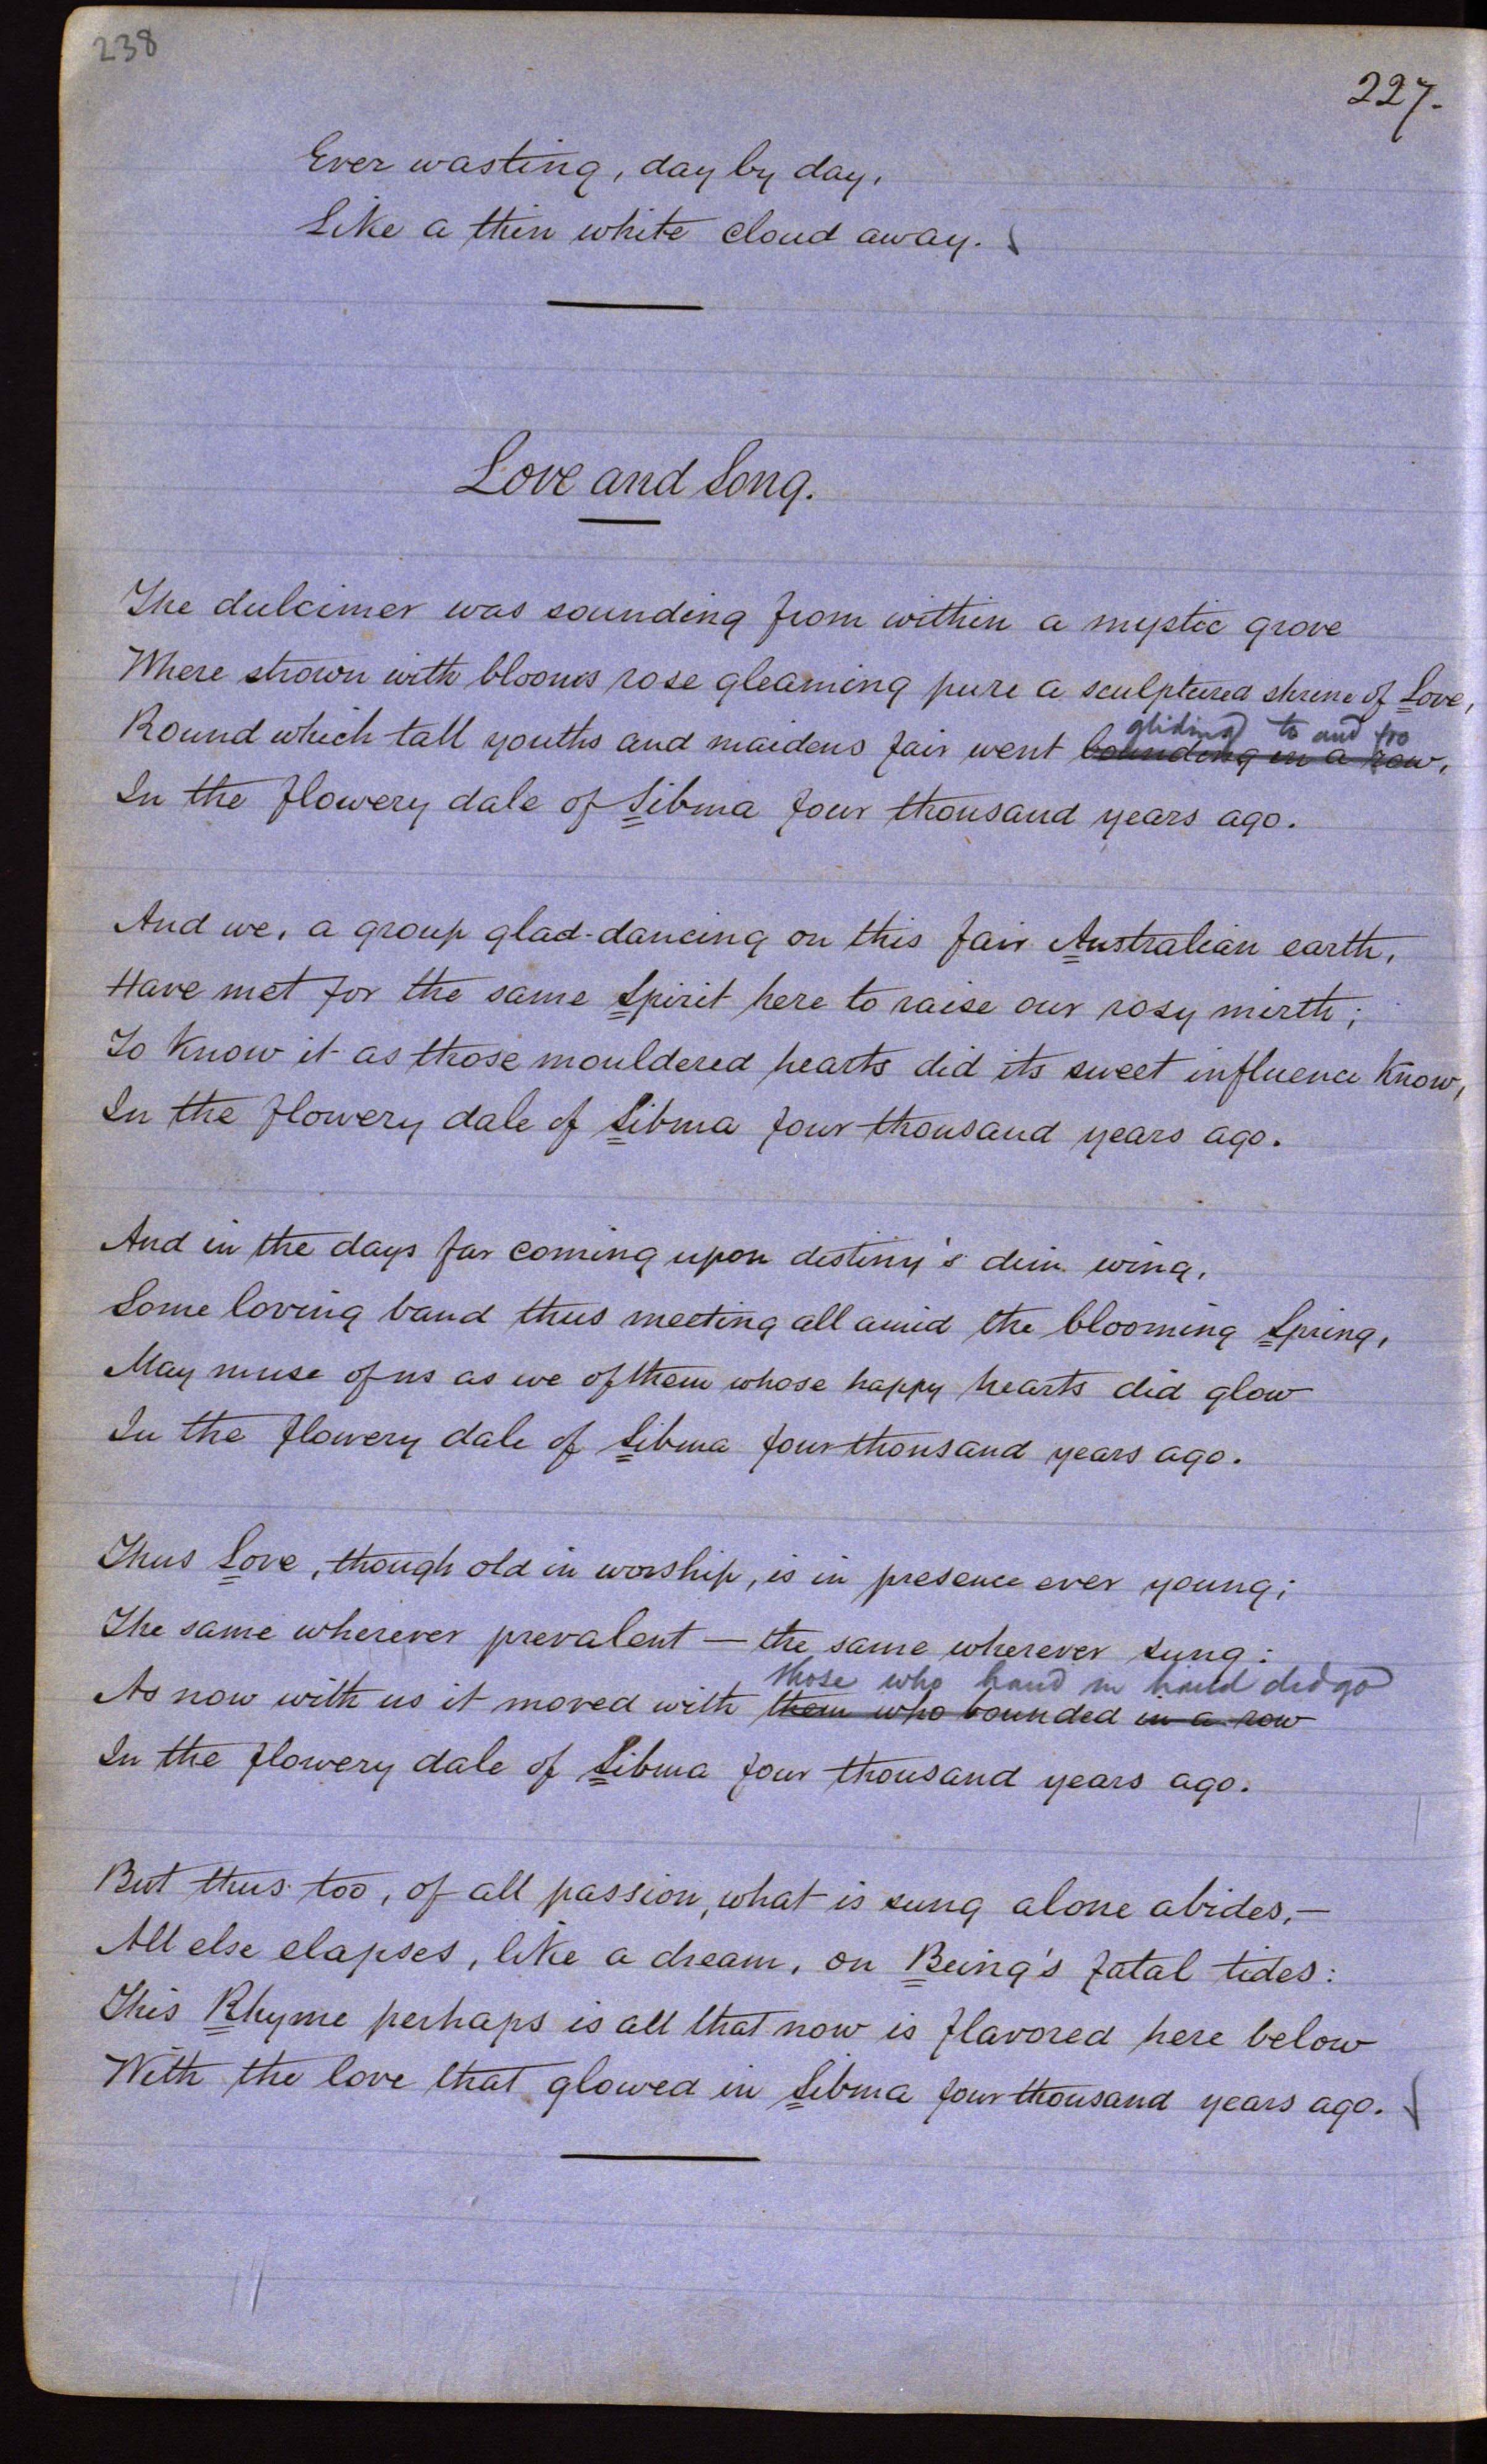 238
227.
Ever wasting, day by day,
Like a thin white cloud away.
Love and Song.
The dulcimer was sounding from within a mystic grove
Where strown with blooms rose gleaming pure a sculptured shrine of Love,
gliding to and fro
Round which tall youths and maidens fair went bounding in a row,
In the flowery dale of Sibma four thousand years ago.
And we, a group glad-dancing on this fair Australian earth,
Have met for the same Spirit here to raise our rosy mirth;
To know it as those mouldered hearts did its sweet influence know,
In the flowery dale of Sibma four thousand years ago.
And in the days far coming upon destiny's dim wing,
Some loving band thus meeting all amid the blooming Spring,
May muse of us as we of them whose happy hearts did glow
In the flowery dale of Sibma four thousand years ago.
Thus Love, though old in worship, is in presence ever young;
The same wherever prevalent — the same wherever sung:
those who hand in hand did go
As now with us it moved with them who bounded in a row
In the flowery dale of Sibma four thousand years ago.
But thus too, of all passion, what is sung alone abides,—
All else elapses, like a dream, on Being's fatal tides:
This Rhyme perhaps is all that now is flavored here below
With the love that glowed in Sibma four thousand years ago.